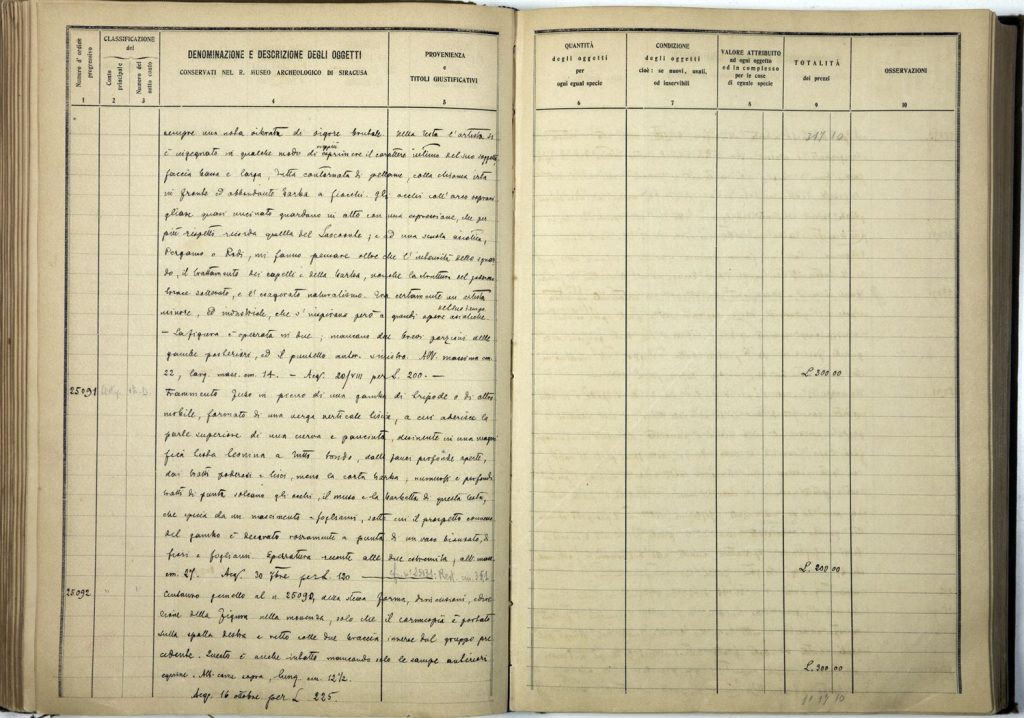 Numero d'ordine progressivo
CLASSIFICAZIONE
del
Conto principale
Numero del sotto conto
DENOMINAZIONE E DESCRIZIONE DEGLI OGGETTI
CONSERVATI NEL R. MUSEO ARCHEOLOGICO DI SIRACUSA
PROVENIENZA
e
TITOLI GIUSTIFICATIVI
1 2 3 4 5
sempre una nota di vigore brutale. Nella testa l'artista si
è ingegnato in qualche modo di esprimere il carattere intimo del suo soggetto,
faccia larga, tutta contornata di pellame, colla chioma irta
in fronte ed abbondante barba a fiocchi. Gli occhi coll'arco sopraci
gliare quasi uncinato guardano in alto con una espressione, che per
più rispetti ricorda quella del Laocoonte; e ad una scuola asiatica,
Pergamo o Rodi, mi fanno pensare oltre che l'intensità dello sguar
do, il trattamento dei capelli e della barba, nonché la struttura del
torace sollevato, e l'esagerato naturalismo. Era certamente un artista
minore, ed industriale, che s'inspirava però a grandi opere asiatiche
del suo tempo.
- La figura è spezzata in due; mancano due brevi porzioni delle
gambe posteriori, ed il puntello anter. sinistro. Alt. massima cm.
22, larg. mass. cm. 14. - Acq. 20/VIII per L. 200. -
25091
Frammento fuso in pieno di una gamba di tripode o di altro
mobile, formato di una verga verticale liscia, a cui aderisce la
parte superiore di una curva e panciuta, desinente in una magni
fica testa leonina a tutto tondo, dalle fauci profonde aperte,
dai tratti poderosi e lisci, meno la corta barba; numerosi e profondi
tratti di punta solcano gli occhi, il muso e la barbetta di questa testa,
che spicca da un nascimento a fogliami, sotto cui il prospetto convesso
del gambo è decorato sobriamente a punta di un vaso biansato, di
fiori e fogliami. Spezzatura recente alle due estremità, alt. mass.
cm. 27. Acq. 30 7bre per L. 120
25092 " "
Centauro gemello al n. 25090, della stessa forma, dimensioni,
zione della figura nella movenza, solo che il cornucopia è portato
sulla spalla destra e retto colle due braccia inverse dal gruppo pre
cedente. Questo è anche intatto mancando solo le zampe anteriori
equine. Alt. come sopra, lung. cm. 12½.
Acq. 16 ottobre per L. 225.
QUANTITÀ
degli oggetti
per
ogni egual specie
CONDIZIONE
degli oggetti
cioè: se nuovi, usati,
od inservibili
VALORE ATTRIBUITO
ad ogni oggetto
ed in complesso
per le cose
di eguale specie
TOTALITÀ
dei prezzi
OSSERVAZIONI
6 7 8 9 10
317 10
L. 300 00
L. 200 00
L. 300 00
1117 10